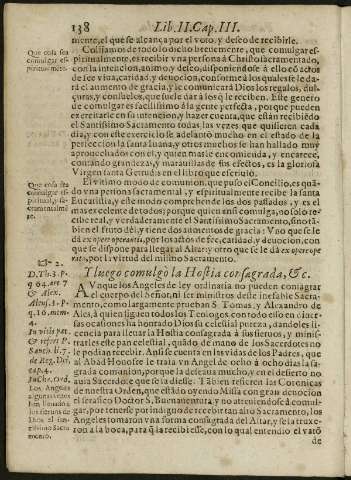 138 Lib. II. Cap. III.
mente, el que se alcança por el voto, y deseo de recibirle.
Que cosa sea comulgar espiritualmẽte.
Colijamos de todo lo dicho breuemente, que comulgar es-
piritualmente, es recibir vna persona à Christo sacramentado,
con la intencion, animo, y deseo, disponiendose à ello cõ actos
de fee viua, caridad, y deuocion, conforme à los quales se le da-
rà el aumento de gracia, y le comunicarà Dios los regalos, dul-
çuras, y consuelos, que suele dar à los q̃ le reciben. Este genero
de comulgar es facilissimo à la gente perfecta, porque pueden
exercitarle con su intencion, y hazer cuenta, que estàn recibiẽdo
el Santissimo Sacramento todas las vezes que quisieren cada
dia, y con este exercicio se adelantò mucho en el estado de la
perfeccion la santa Iuana, y otros muchos se han hallado muy
aprouechados con el, y quien mas le encomienda, y encarece,
contando grandezas, y marauillas de sus efectos, es la gloriosa
Virgen santa Gertrudis en el libro que escriuiò.
Que cosa sea comulgar espiritual, y sacramentalmente.
El vltimo modo de comunion, que puso el Concilio, es quã-
do vna persona sacramental, y espiritualmente recibe la santa
Eucaristia, y este modo comprehende los dos passados, y es el
mas excelente de todos; porque quien assi comulga, no solo re-
cibe real, y verdaderamente el Santissimo Sacramento, sino tã-
bien el fruto dèl, y tiene dos aumentos de gracia: Vno que se le
dà ex opere operantis, por los actos de fee, caridad, y deuocion, con
que se dispone para llegar al Altar; y otro que se le dà ex opere ope-
rato, por la virtud del mismo Sacramento.
Y luego comulgò la Hostia consagrada, &c.
2.
D. Th. 3. p.
q. 64. art. 7
& Alex.
Alens. 3. p.
q. 16. mem.
4.
In vitis pat.
& refert P.
Santo. li. 7.
de Reg. Dei
cap. 4.
In Chr. Ord.
Los Angeles
algunas vezes
han lleuado à
los sieruos de
Dios el santissimo
Sacramento.
AVnque los Angeles de ley ordinaria no pueden consagrar
el cuerpo del Señor, ni ser ministros deste inefable Sacra-
mento, como largamente prueban S. Tomas, y Alexandro de
Ales, à quien siguen todos los Teologos con todo esso en diuer-
sas ocasiones ha honrado Dios su celestial pureza, dandoles li-
cencia para lleuar la Hostia consagrada à sus sieruos, y minis-
trarles este pan celestial, quãdo de mano de los Sacerdotes no
le podian recibir. Ansi se cuenta en las vidas de los Padres, que
al Abad Honofre le traìa vn Angel de ocho à ocho dias la sa-
grada comunion, porque la deseaua mucho, y en el desierto no
auia Sacerdote que se la diesse. Tãbien refieren las Coronicas
de nuestra Orden, que estãdo oyendo Missa con gran deuocion
el serafico Doctor S. Buenauentura, y no atreuiendose à comul-
gar, por tenerse por indigno de recebir tan alto Sacramento, los
Angeles tomaron vna forma consagrada del Altar, y se la truxe-
ron à la boca, para q̃ la recibiesse, con lo qual entendio el varõ
de